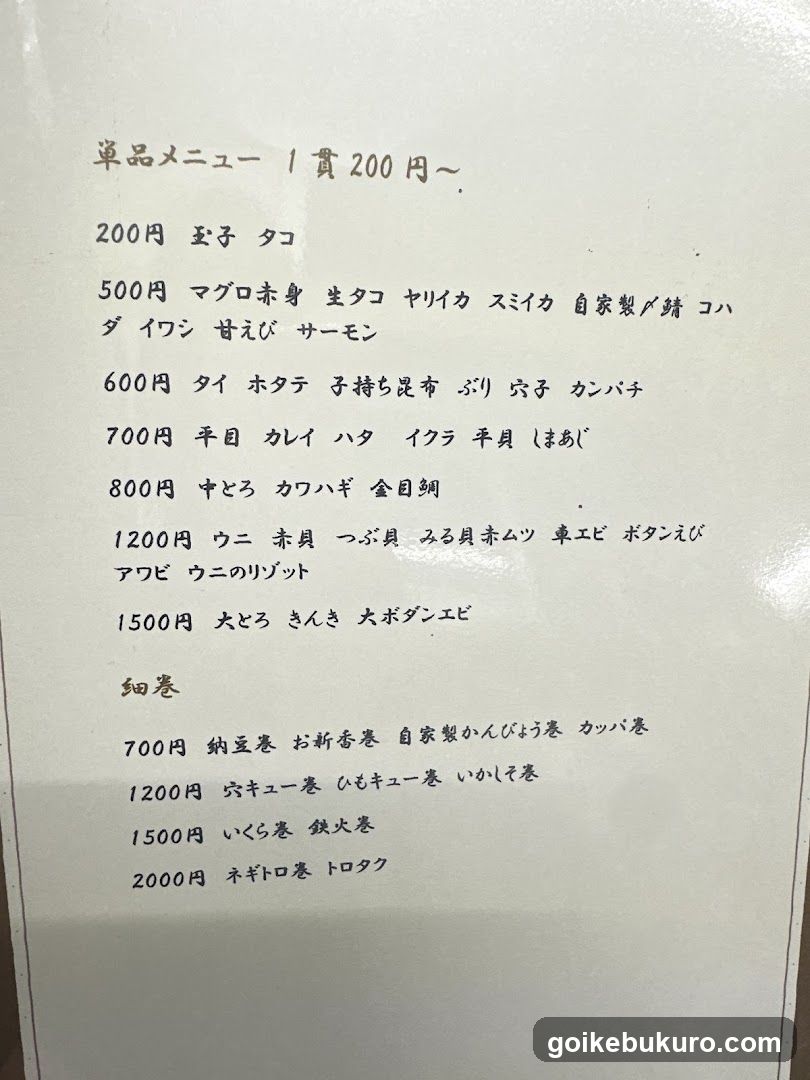 単品メニュー 1貫200円～
200円 玉子 タコ
500円 マグロ赤身 生タコ ヤリイカ スミイカ 自家製〆鯖 コハ
ダ イワシ 甘えび サーモン
600円 タイ ホタテ 子持ち昆布 ぶり 穴子 カンパチ
700円 平目 カレイ ハタ イクラ 平貝 しまあじ
800円 中とろ カワハギ 金目鯛
1200円 ウニ 赤貝 つぶ貝 みる貝赤ムツ 車エビ ボタンえび
アワビ ウニのリゾット
1500円 大とろ きんき 大ボダンエビ
細巻
700円 納豆巻 お新香巻 自家製かんぴょう巻 カッパ巻
1200円 穴キュー巻 ひもキュー巻 いかしそ巻
1500円 いくら巻 鉄火巻
2000円 ネギトロ巻 トロタク
goikebukuro.com